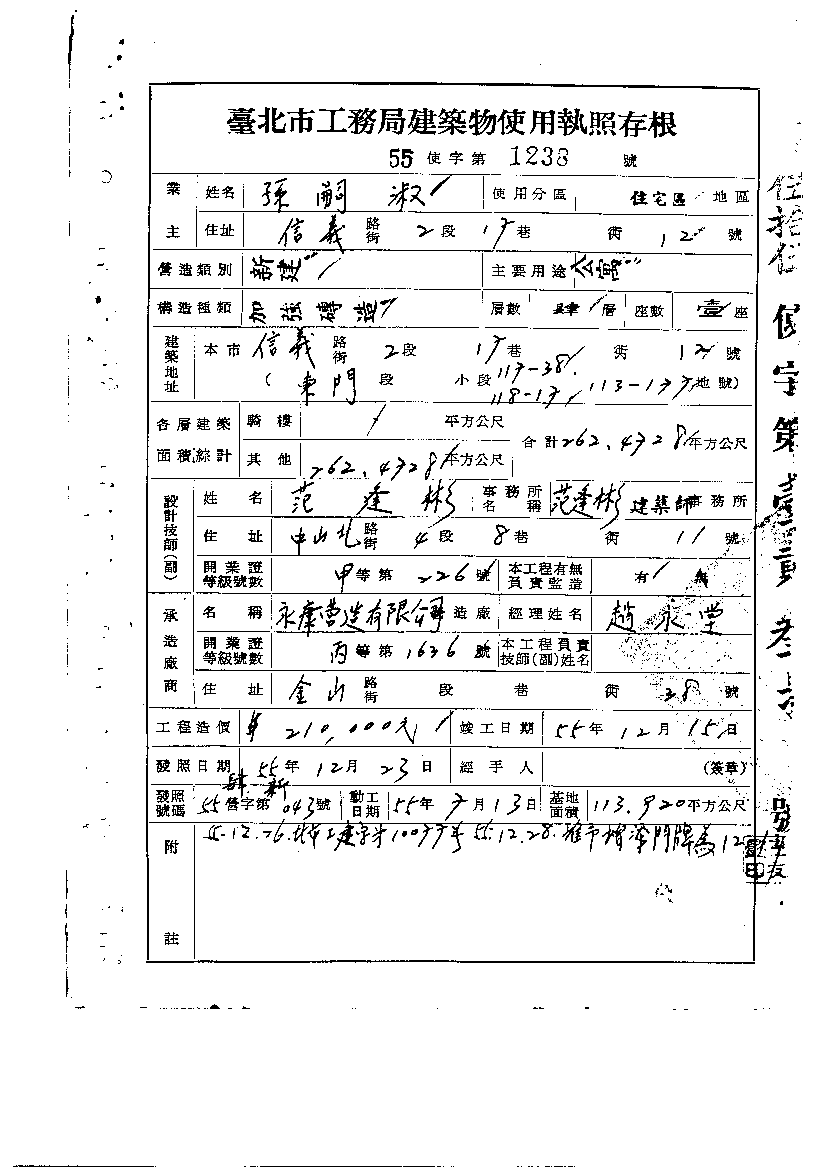 臺北市工務局建築物使用執照存根
55 使字第 1238 號
業主 姓名 孫嗣淑 使用分區 住宅區 地區
住址 信義 路街 2 段 17 巷 街 12 號
營造類別 新建 主要用途 公寓
構造種類 加強磚造 層數 肆 層 座數 壹 座
建築地址 本市 信義 路街 2 段 17 巷 街 12 號
( 東門 段 小段 117-38 118-17 113-177 地號)
各層建築面積綜計 騎樓 / 平方公尺 合計 262.4728 平方公尺
其他 262.4728 平方公尺
設計技師(副) 姓名 范逢彬 事務所名稱 范逢彬 建築師事務所
住址 中山北 路街 4 段 8 巷 街 11 號
開業證等級號數 甲 等第 226 號 本工程有無負責監造 有 無
承造廠商 名稱 永摩營造有限公司 造廠 經理姓名 趙永堂
開業證等級號數 丙 等第 1636 號 本工程負責技師(副)姓名
住址 金山 路街 段 巷 街 38 號
工程造價 210,000元 竣工日期 55 年 12 月 15 日
發照日期 55 年 12 月 23 日 經手人 (簽章)
發照號碼 55 營字第 043 號 動工日期 55 年 7 月 13 日 基地面積 113.920 平方公尺
附註 55.12.26. 55.12.28. 門牌為12